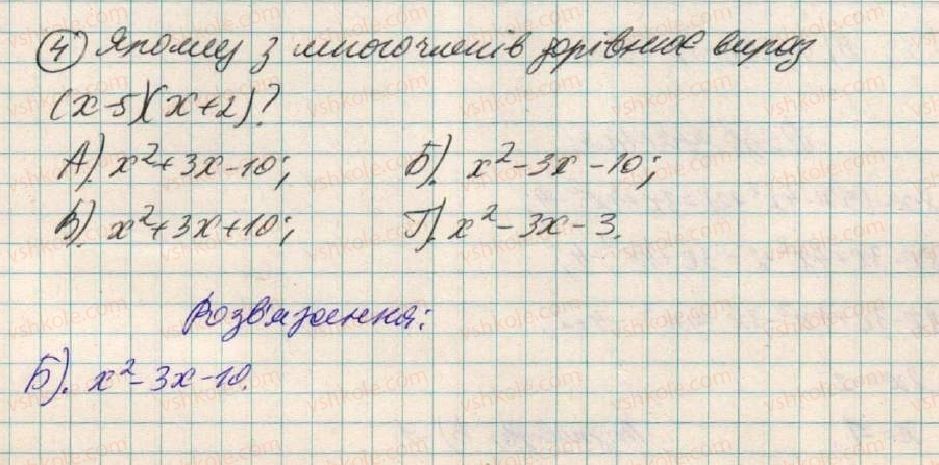 4) Якому з многочленів дорівнює вираз
(x-5)(x+2)?
А). x²+3x-10; Б). x²-3x-10;
В). x²+3x+10; Г). x²-3x-3.
Розв'язання:
Б). x²-3x-10.